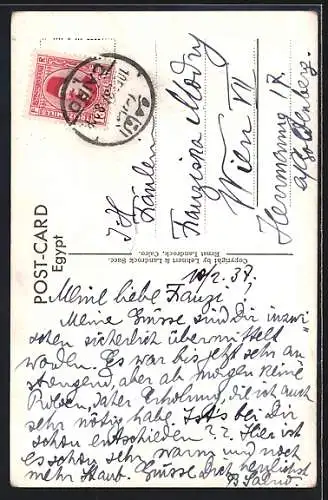 POST-CARD
Egypt
Copyright by Lehnert & Landrock Succ.
Ernst Landrock, Cairo.
CAIRO
Franziska Modry
Wien VI
10/2. 37.
Meine liebe Franzi!
Meine Grüsse sind Dir inzwi
schen sicherlich übermittelt
worden. Es war bis jetzt sehr an
strengend, aber ab morgen keine
Proben, daher Erholung, die ich auch
sehr nötig habe. Ist's bei Dir
schon entschieden?? Hier ist
es schon sehr warm und noch
mehr Staub. Grüsse Dich herzlichst